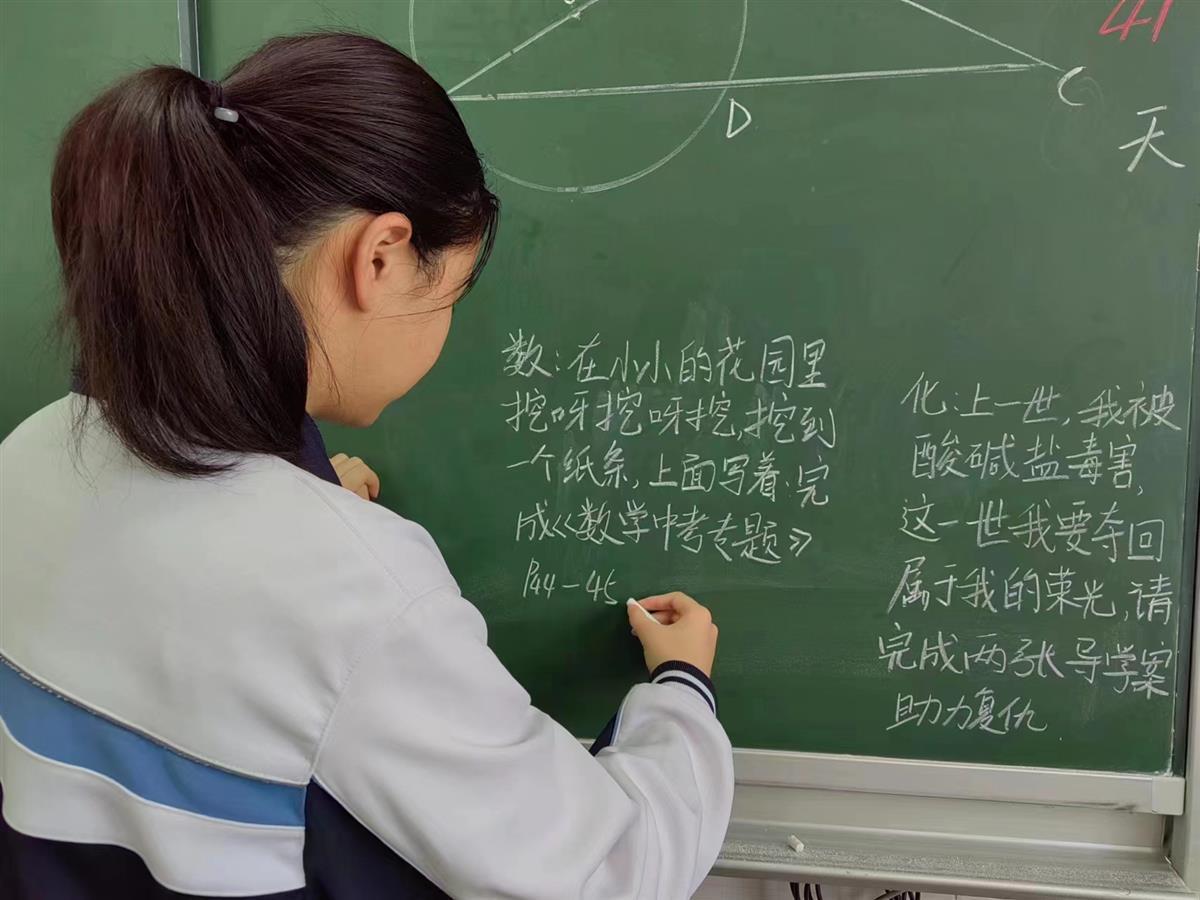 41
C
D
天
数:在小小的花园里
挖呀挖呀挖,挖到
一个纸条,上面写着:完
成《数学中考专题》
P44-45
化:上一世,我被
酸碱盐毒害,
这一世我要夺回
属于我的荣光,请
完成两张导学案
助力复仇